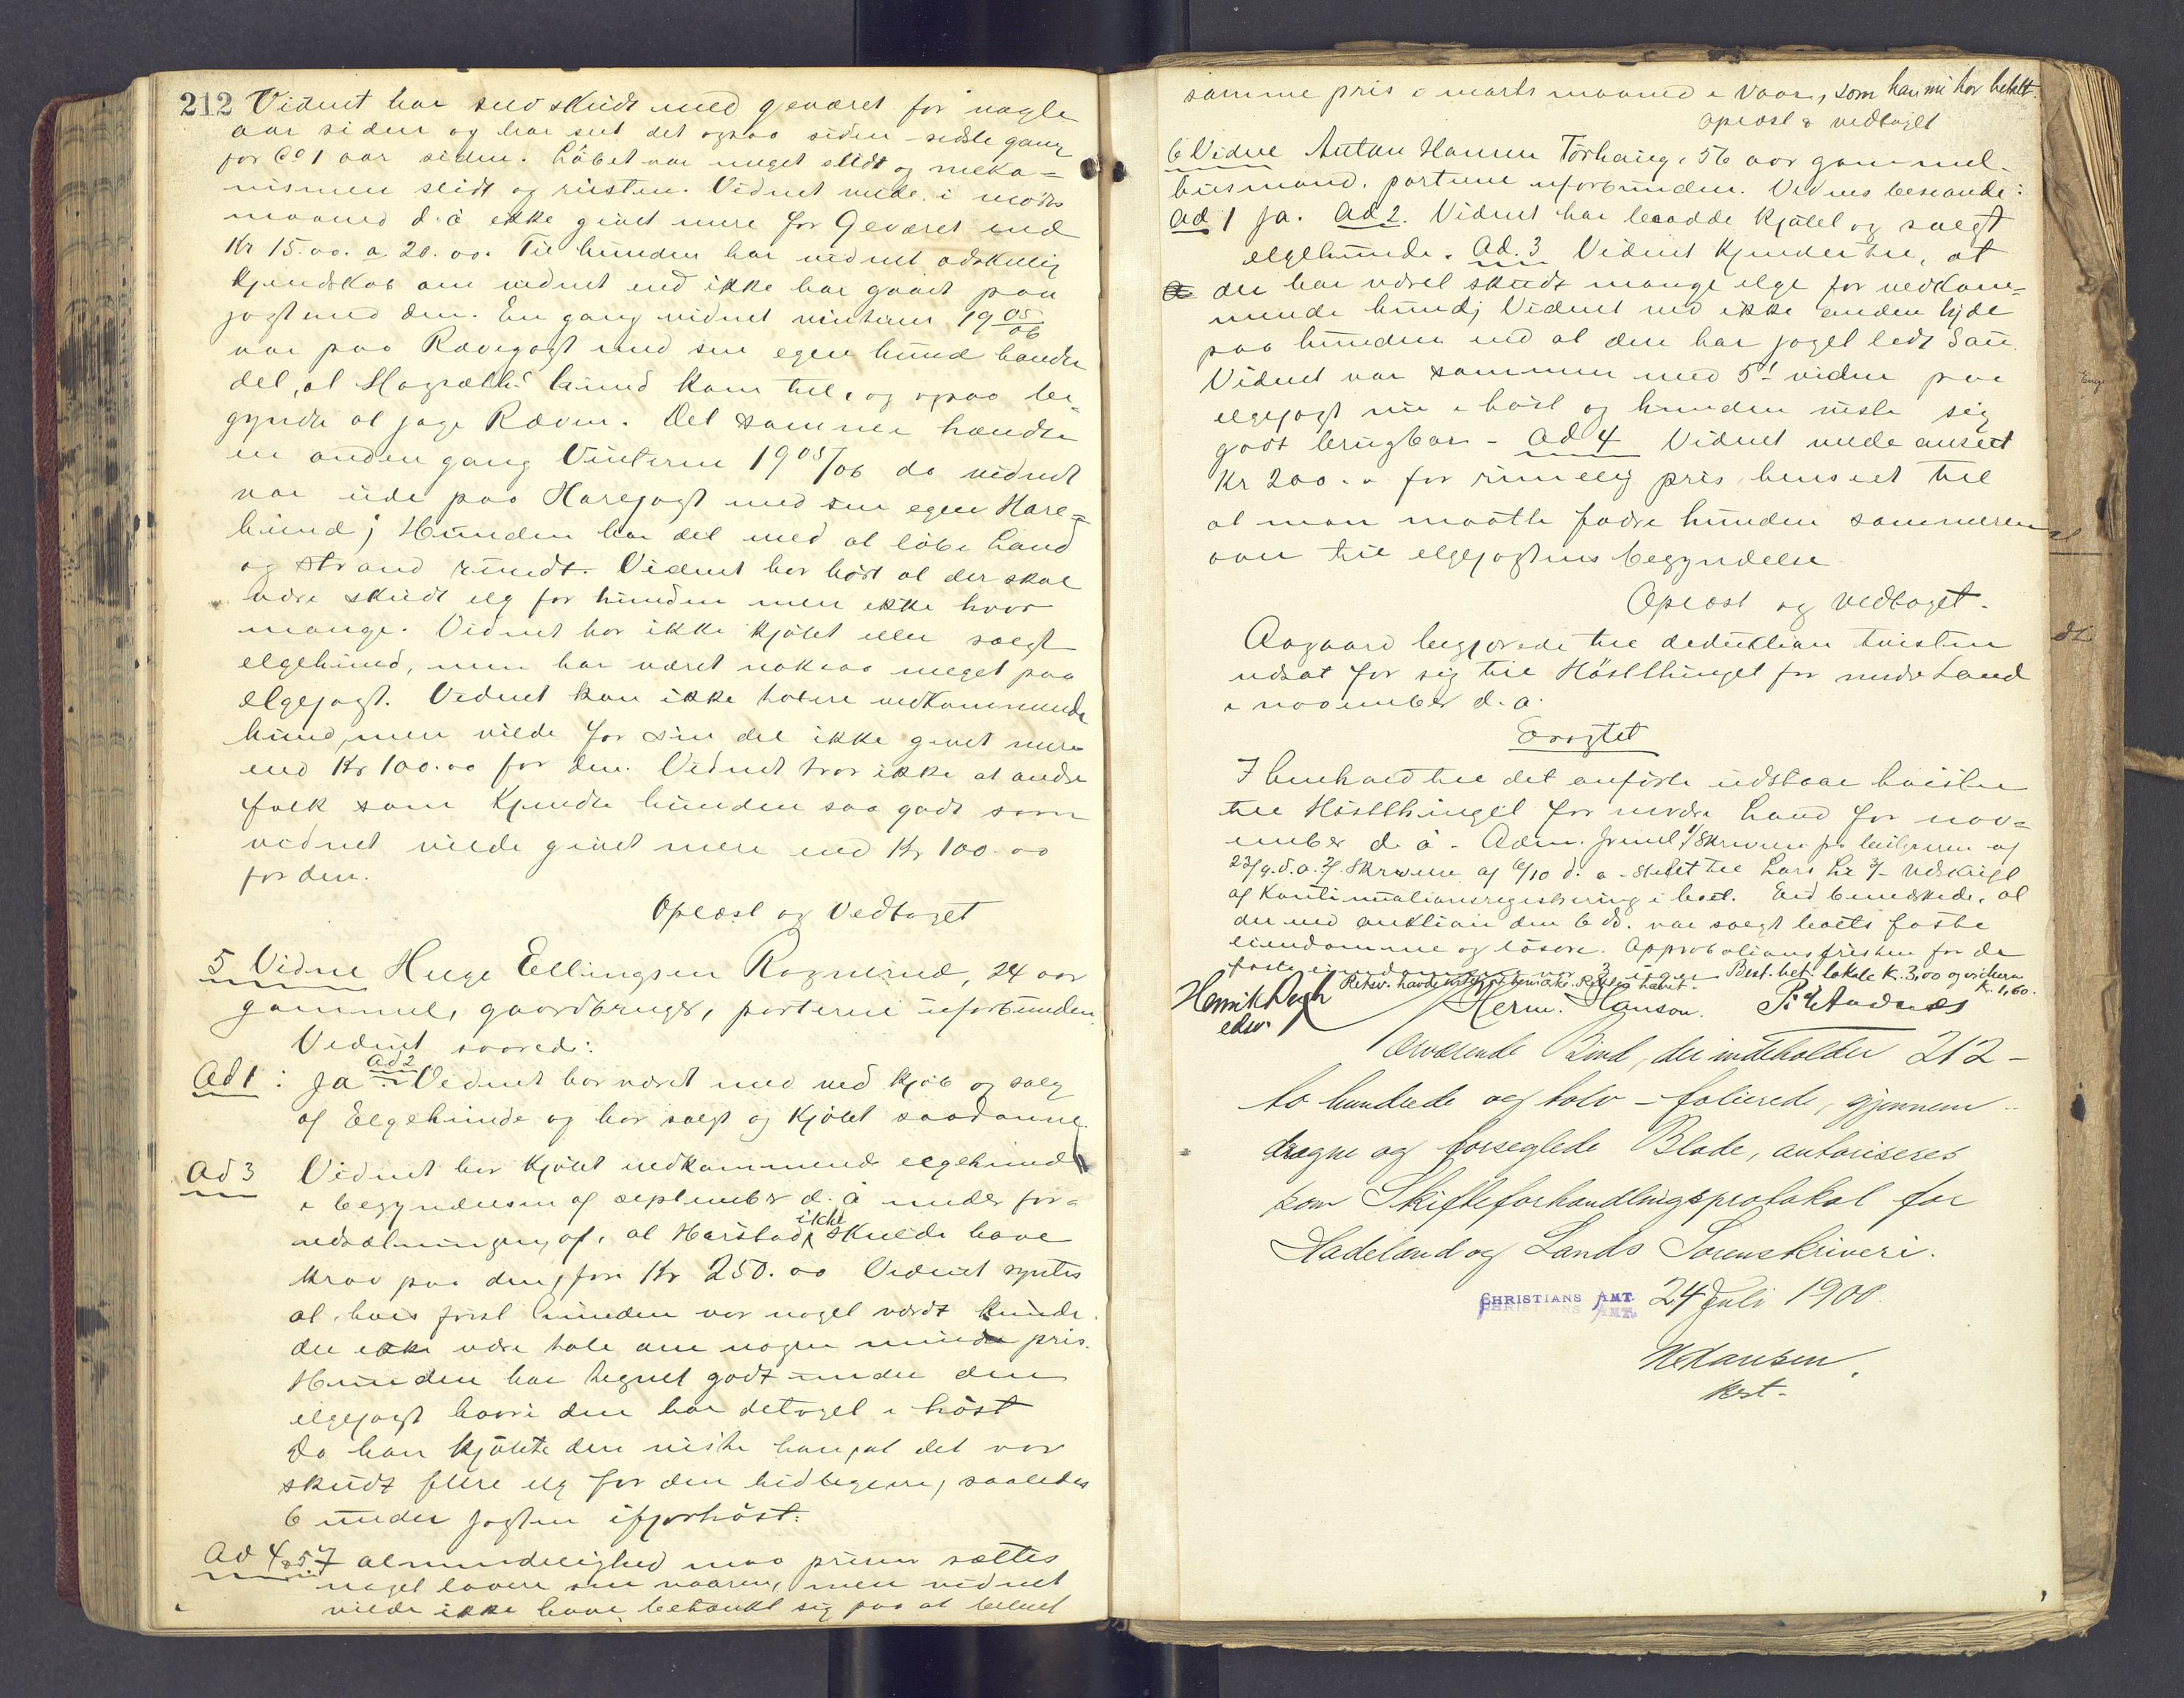 212 Vidnet har selv skudt med geværet for nogle
aar siden og har set det ogsaa siden - sidste gang
for Co 1 aar siden. Löbet var meget slidt og meka=
nismen slidt og rusten. Vidnet vilde i marts
maaned d. å ikke givet mere for Geværet end
Kr 15.00. a 20.00. Til hunden har vidnet adskillig
kjendskab om vidnet end ikke har gaaet paa
jagt med den. En gang vidnet vinteren 1905/06
var paa Rævejagt med sin egen hund hændte
det, at hund kom til, og ogsaa be-
gyndte at jage Ræven. Det samme hændte
en anden gang Vinteren 1905/06 da vidnet
var ude paa Harejagt med sin egen Hare=
hund; Hunden har det med at löbe Land
og strand rundt. Vidnet har hört at der skal
være skudt elg for hunden men ikke hvor
mange. Vidnet har ikke kjöbt eller solgt
elgehund, men har været noksaa meget paa
elgejagt. Vidnet kan ikke taxere vedkommende
hund, men vilde for sin del ikke givet mere
end Kr 100.00 for den. Vidnet tror ikke at andre
folk som kjendte hunden saa godt som
vidnet vilde givet mere end Kr 100.00
for den.
Oplæst og Vedtaget
5 Vidne Helge Ellingsen Rognerud, 24 aar
gammel, gaardbruger, parterne uforbunden.
Vidnet svarede:
Ad 1: Ja Ad 2 Vidnet har været med ved kjöb og salg
af Elgehunde og har solgt og kjöbt saadanne.
Ad 3 Vidnet har kjöbt vedkommende elgehund
i begyndelsen af september d. å under for-
udsætningen, af, at Harstad ikke skulde have
krav paa den, for Kr 250.00 Vidnet syntes
at hvis först hunden var noget værdt kunde
der ikke være tale om nogen mindre pris.
Hunden har tegnet godt under den
elgejagt hvori den har deltaget i höst
Da han kjöbte den vidste han, at det var
skudt flere elg for den tidligere, saaledes
6 under jagten ifjorhöst.
Ad 4 & 5. I almindelighed maa prisen sættes
noget lavere om vaaren, men vidnet
vilde ikke have betænkt sig paa at betalt
samme pris i marts maaned i vaar, som han nu har betalt.
Oplæst & vedtaget
6 Vidne Anton Hansen Törhaug, 56 aar gammel.
husmand, parterne uforbunden. Vidnes besvarede:
Ad 1 Ja. Ad 2. Vidnet har baade kjöbt og solgt
elgehunde. Ad. 3 Vidnet kjender til, at
der har været skudt mange elge for vedkom=
mende hund; Vidnet ved ikke anden lyde
paa hunden end at den har jaget lidt Sau.
Vidnet var sammen med 5t vidne paa
elgejagt nu i höst og hunden viste sig
godt brugbar - Ad 4 Vidnet vilde anseet
Kr 200.- for rimelig pris, henseet til
at man maatte födre hunden sommeren
over til elgejagtens begyndelse
Oplæst og vedtaget.
Aagaard begjærede til deduktion tvisten
udsat for sig til Höstthinget for nordre Land
i november d. a.
Eragtet
I henhold til det anförte udstaar tvisten
til Höstthinget for nordre Land for nov=
ember d. å. Adm. freml. 1/ Skrivelse fra af
23/9.d.a. 2/ Skrivelse af 6/10 d. a - til Lars 3/ Udskrift
af Kontinuationsregistrering i boet. End bemærkede, at
der ved auktion den 6 ds. var solgt boets faste
eiendomme og lösöre. Approbationsfristen for de
faste eiendomme var 3 uger Best. bet. lokale k. 3,00 og vidnern k. 1,60.
Retsv. havde intet at bemærke. Retten hævet.
Henrik
edsv.
Herm. Hanson.
Nærværende Bind, der indeholder 212 -
to hundrede og tolv - folierede, gjennem-
dragne og forseglede Blade, autoriseres
som Skifteforhandlingsprotokol for
Hadeland og Lands Sorenskriveri.
CHRISTIANS AMT. 24 Juli 1900.
Hansen
kst.